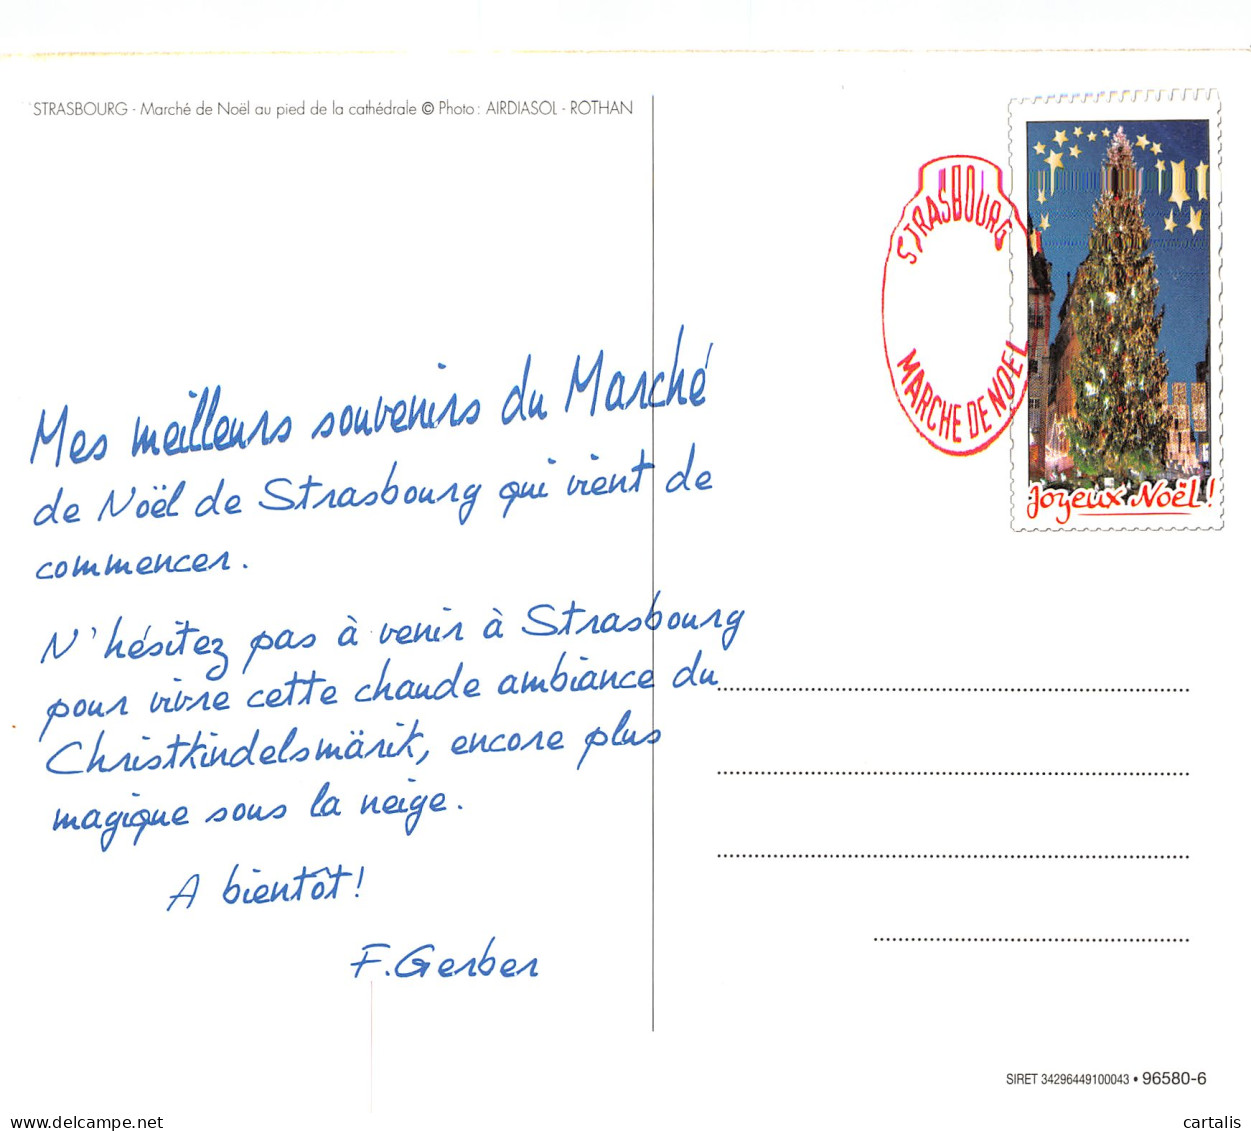 STRASBOURG - Marché de Noël au pied de la cathédrale © Photo : AIRDIASOL - ROTHAN
STRASBOURG
MARCHE DE NOEL
Joyeux Noël !
Mes meilleurs souvenirs du Marché
de Noël de Strasbourg qui vient de
commencer.
N'hésitez pas à venir à Strasbourg
pour vivre cette chaude ambiance du
Christkindelsmärik, encore plus
magique sous la neige.
A bientôt!
F. Gerber
SIRET 34296449100043 • 96580-6
delcampe.net
cartalis